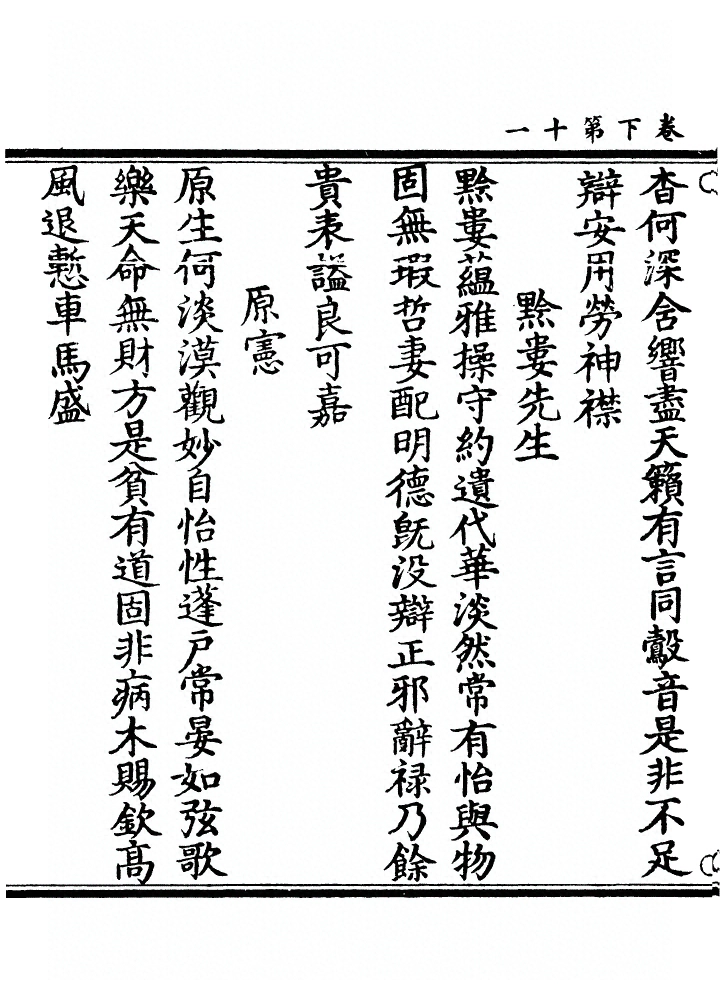 卷下第十一
杳何深含響盡天籟有言同鷇音是非不足
辯安用勞神襟
黔婁先生
黔婁蘊雅操守約遺代華淡然常有怡與物
固無瑕哲妻配明德旣没辯正邪辭禄乃餘
貴表謚良可嘉
原憲
原生何淡漠觀妙自怡性蓬戸常晏如弦歌
樂天命無財方是貧有道固非病木賜欽髙
風退慙車馬盛